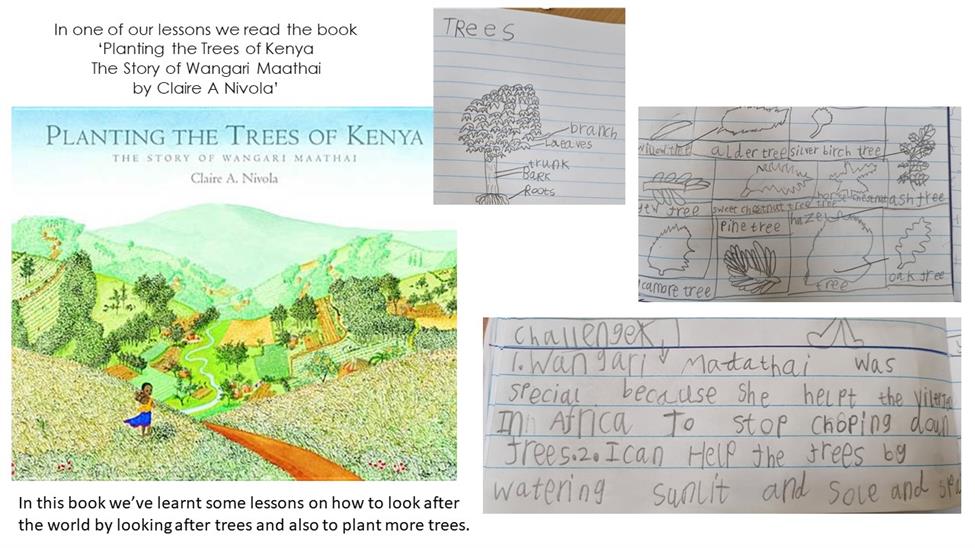 In one of our lessons we read the book
‘Planting the Trees of Kenya
The Story of Wangari Maathai
by Claire A Nivola’
PLANTING THE TREES OF KENYA
THE STORY OF WANGARI MAATHAI
Claire A. Nivola
In this book we’ve learnt some lessons on how to look after
the world by looking after trees and also to plant more trees.
TReeS
branch
Leaves
trunk
BaRK
Roots
alder tree
silver birch tree
tree
sweet chestnut tree
horse chestnut
ash tree
Pine tree
hazel
tree
oak tree
tree
challenge
1. Wangari Matathai was
special because she helpt the
In Africa To stop choping down
trees. 2. I can Help the trees by
watering sunlit and and